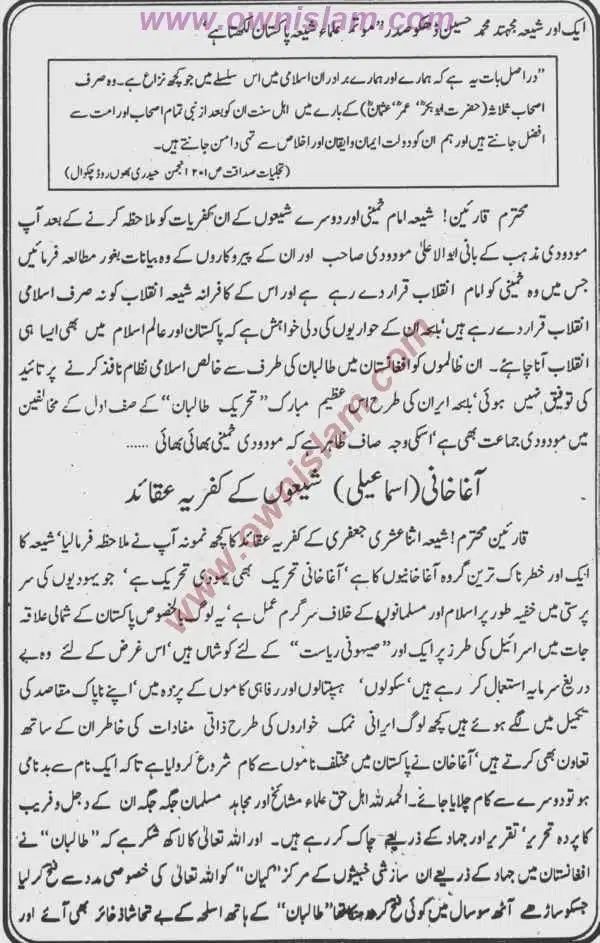 www.ownislam.com
ایک اور شیعہ مجتہد محمد حسین ڈھکو صدر "موتمر علماء شیعہ پاکستان لکھتا ہے'
"دراصل بات یہ ہے کہ ہمارے اور ہمارے برادران اسلامی میں اس سلسلے میں جو کچھ نزاع ہے۔ وہ صرف
اصحاب ثلاثہ (حضرت ابوبکرؓ' عمرؓ' عثمانؓ) کے بارے میں اہل سنت ان کو بعد از نبی تمام اصحاب اور امت سے
افضل جانتے ہیں اور ہم ان کو دولت ایمان و ایقان اور اخلاص سے تہی دامن جانتے ہیں۔
(تجلیات صداقت ص ۲۰۱ انجمن حیدری بھون روڈ چکوال)
محترم قارئین! شیعہ امام خمینی اور دوسرے شیعوں کے ان کفریات کو ملاحظہ کرنے کے بعد آپ
مودودی مذہب کے بانی ابوالاعلیٰ مودودی صاحب اور ان کے پیروکاروں کے وہ بیانات بغور مطالعہ فرمائیں
جس میں وہ خمینی کو امام انقلاب قرار دے رہے ہے اور اس کے کافرانہ شیعہ انقلاب کو نہ صرف اسلامی
انقلاب قرار دے رہے ہیں' بلکہ ان کے حواریوں کی دلی خواہش ہے کہ پاکستان اور عالم اسلام میں بھی ایسا ہی
انقلاب آنا چاہئے۔ ان ظالموں کو افغانستان میں طالبان کی طرف سے خالص اسلامی نظام نافذ کرنے پر تائید
کی توفیق نہیں ہوئی' بلکہ ایران کی طرح اس عظیم مبارک "تحریک طالبان" کے صف اول کے مخالفین
میں مودودی جماعت بھی ہے' اسکی وجہ صاف ظاہر ہے کہ مودودی خمینی بھائی بھائی ......
آغا خانی (اسماعیلی) شیعوں کے کفریہ عقائد
قارئین محترم! شیعہ اثنا عشری جعفری کے کفریہ عقائد کا کچھ نمونہ آپ نے ملاحظہ فرمالیا' شیعہ کا
ایک اور خطرناک ترین گروہ آغاخانیوں کا ہے' آغاخانی تحریک بھی یہودی تحریک ہے' جو یہودیوں کی سر
پرستی میں خفیہ طور پر اسلام اور مسلمانوں کے خلاف سرگرم عمل ہے' یہ لوگ بالخصوص پاکستان کے شمالی علاقہ
جات میں اسرائیل کی طرز پر ایک اور "صیہونی ریاست" کے لئے کوشاں ہیں' اس غرض کے لئے وہ بے
دریغ سرمایہ استعمال کر رہے ہیں' سکولوں' ہسپتالوں اور رفاہی کاموں کے پردہ میں' اپنے ناپاک مقاصد کی
تکمیل میں لگے ہوئے ہیں کچھ لوگ ایرانی نمک خواروں کی طرح ذاتی مفادات کی خاطر ان کے ساتھ
تعاون بھی کرتے ہیں' آغاخان نے پاکستان میں مختلف ناموں سے کام شروع کروالیا ہے تاکہ ایک نام سے بدنامی
ہو تو دوسرے سے کام چلایا جائے۔ الحمدللہ اہل حق علماء مشائخ اور مجاہد مسلمان جگہ جگہ ان کے دجل و فریب
کا پردہ تحریر' تقریر اور جہاد کے ذریعے چاک کر رہے ہیں۔ اور اللہ تعالیٰ کا لاکھ شکر ہے کہ "طالبان" نے
افغانستان میں جہاد کے ذریعے ان سازشی خبیثوں کے مرکز "کیان" کو اللہ تعالیٰ کی خصوصی مدد سے فتح کر لیا
جسکو ساڑھے آٹھ سو سال میں کوئی فتح کر نہ سکا تھا "طالبان" کے ہاتھ اسلحہ کے بے تحاشا ذخائر بھی آئے اور
www.ownislam.com